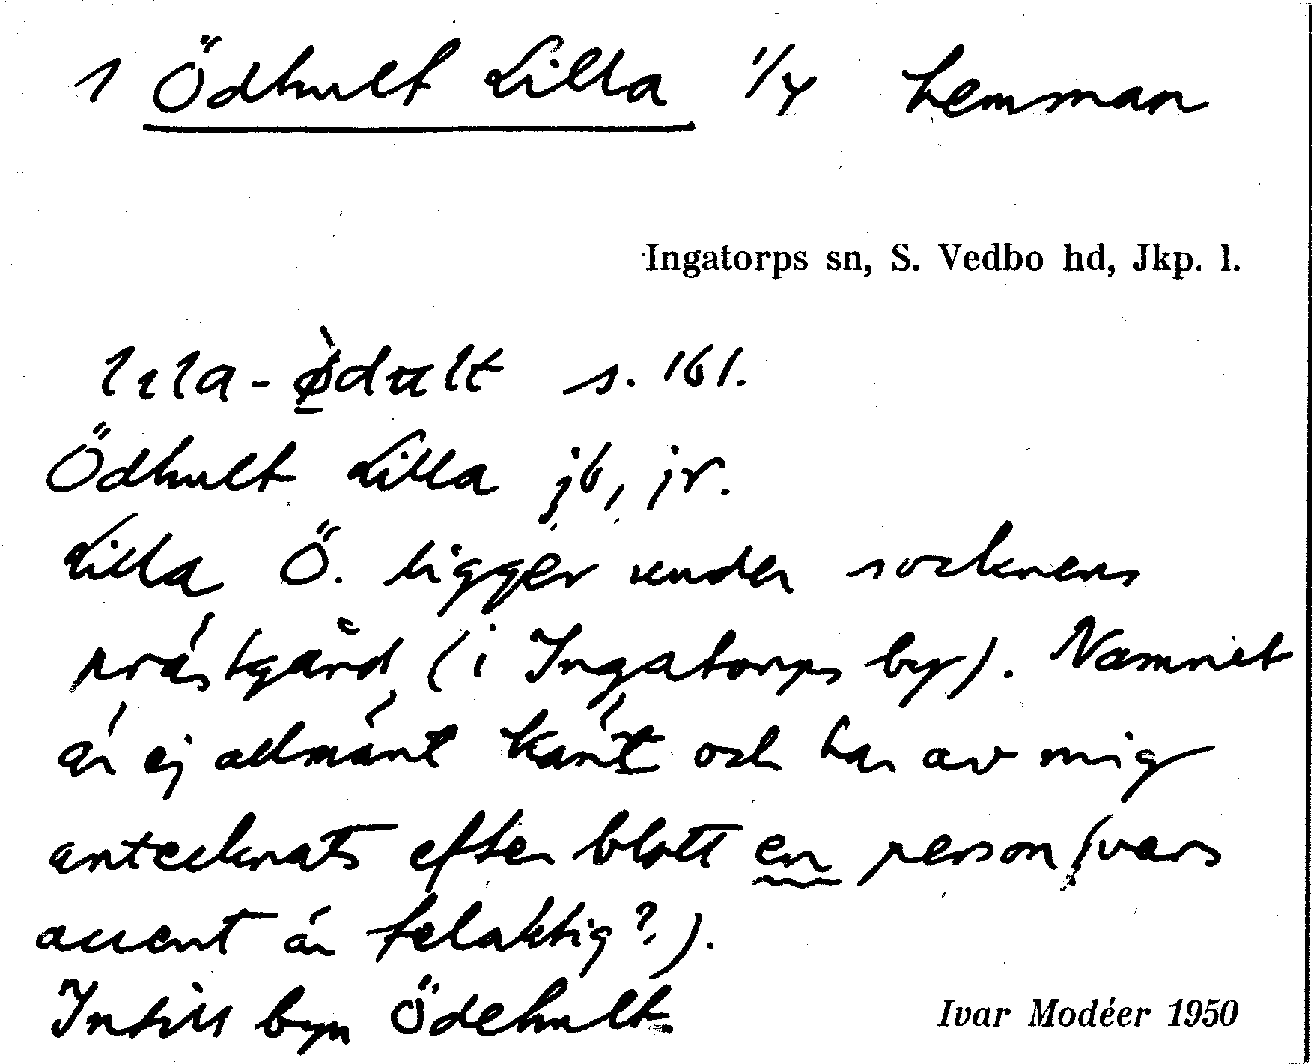 1 Ödhult Lilla 1/4 hemman
Ingatorps sn, S. Vedbo hd, Jkp. l.
s. 161.
Ödhult Lilla jb, jr.
Lilla Ö. ligger under socknens
prästgård (i Ingatorps by). Namnet
är ej allmänt känt och har av mig
antecknats efter blott en person (vars
accent är felaktig?).
Intill byn Ödehult.
Ivar Modéer 1950